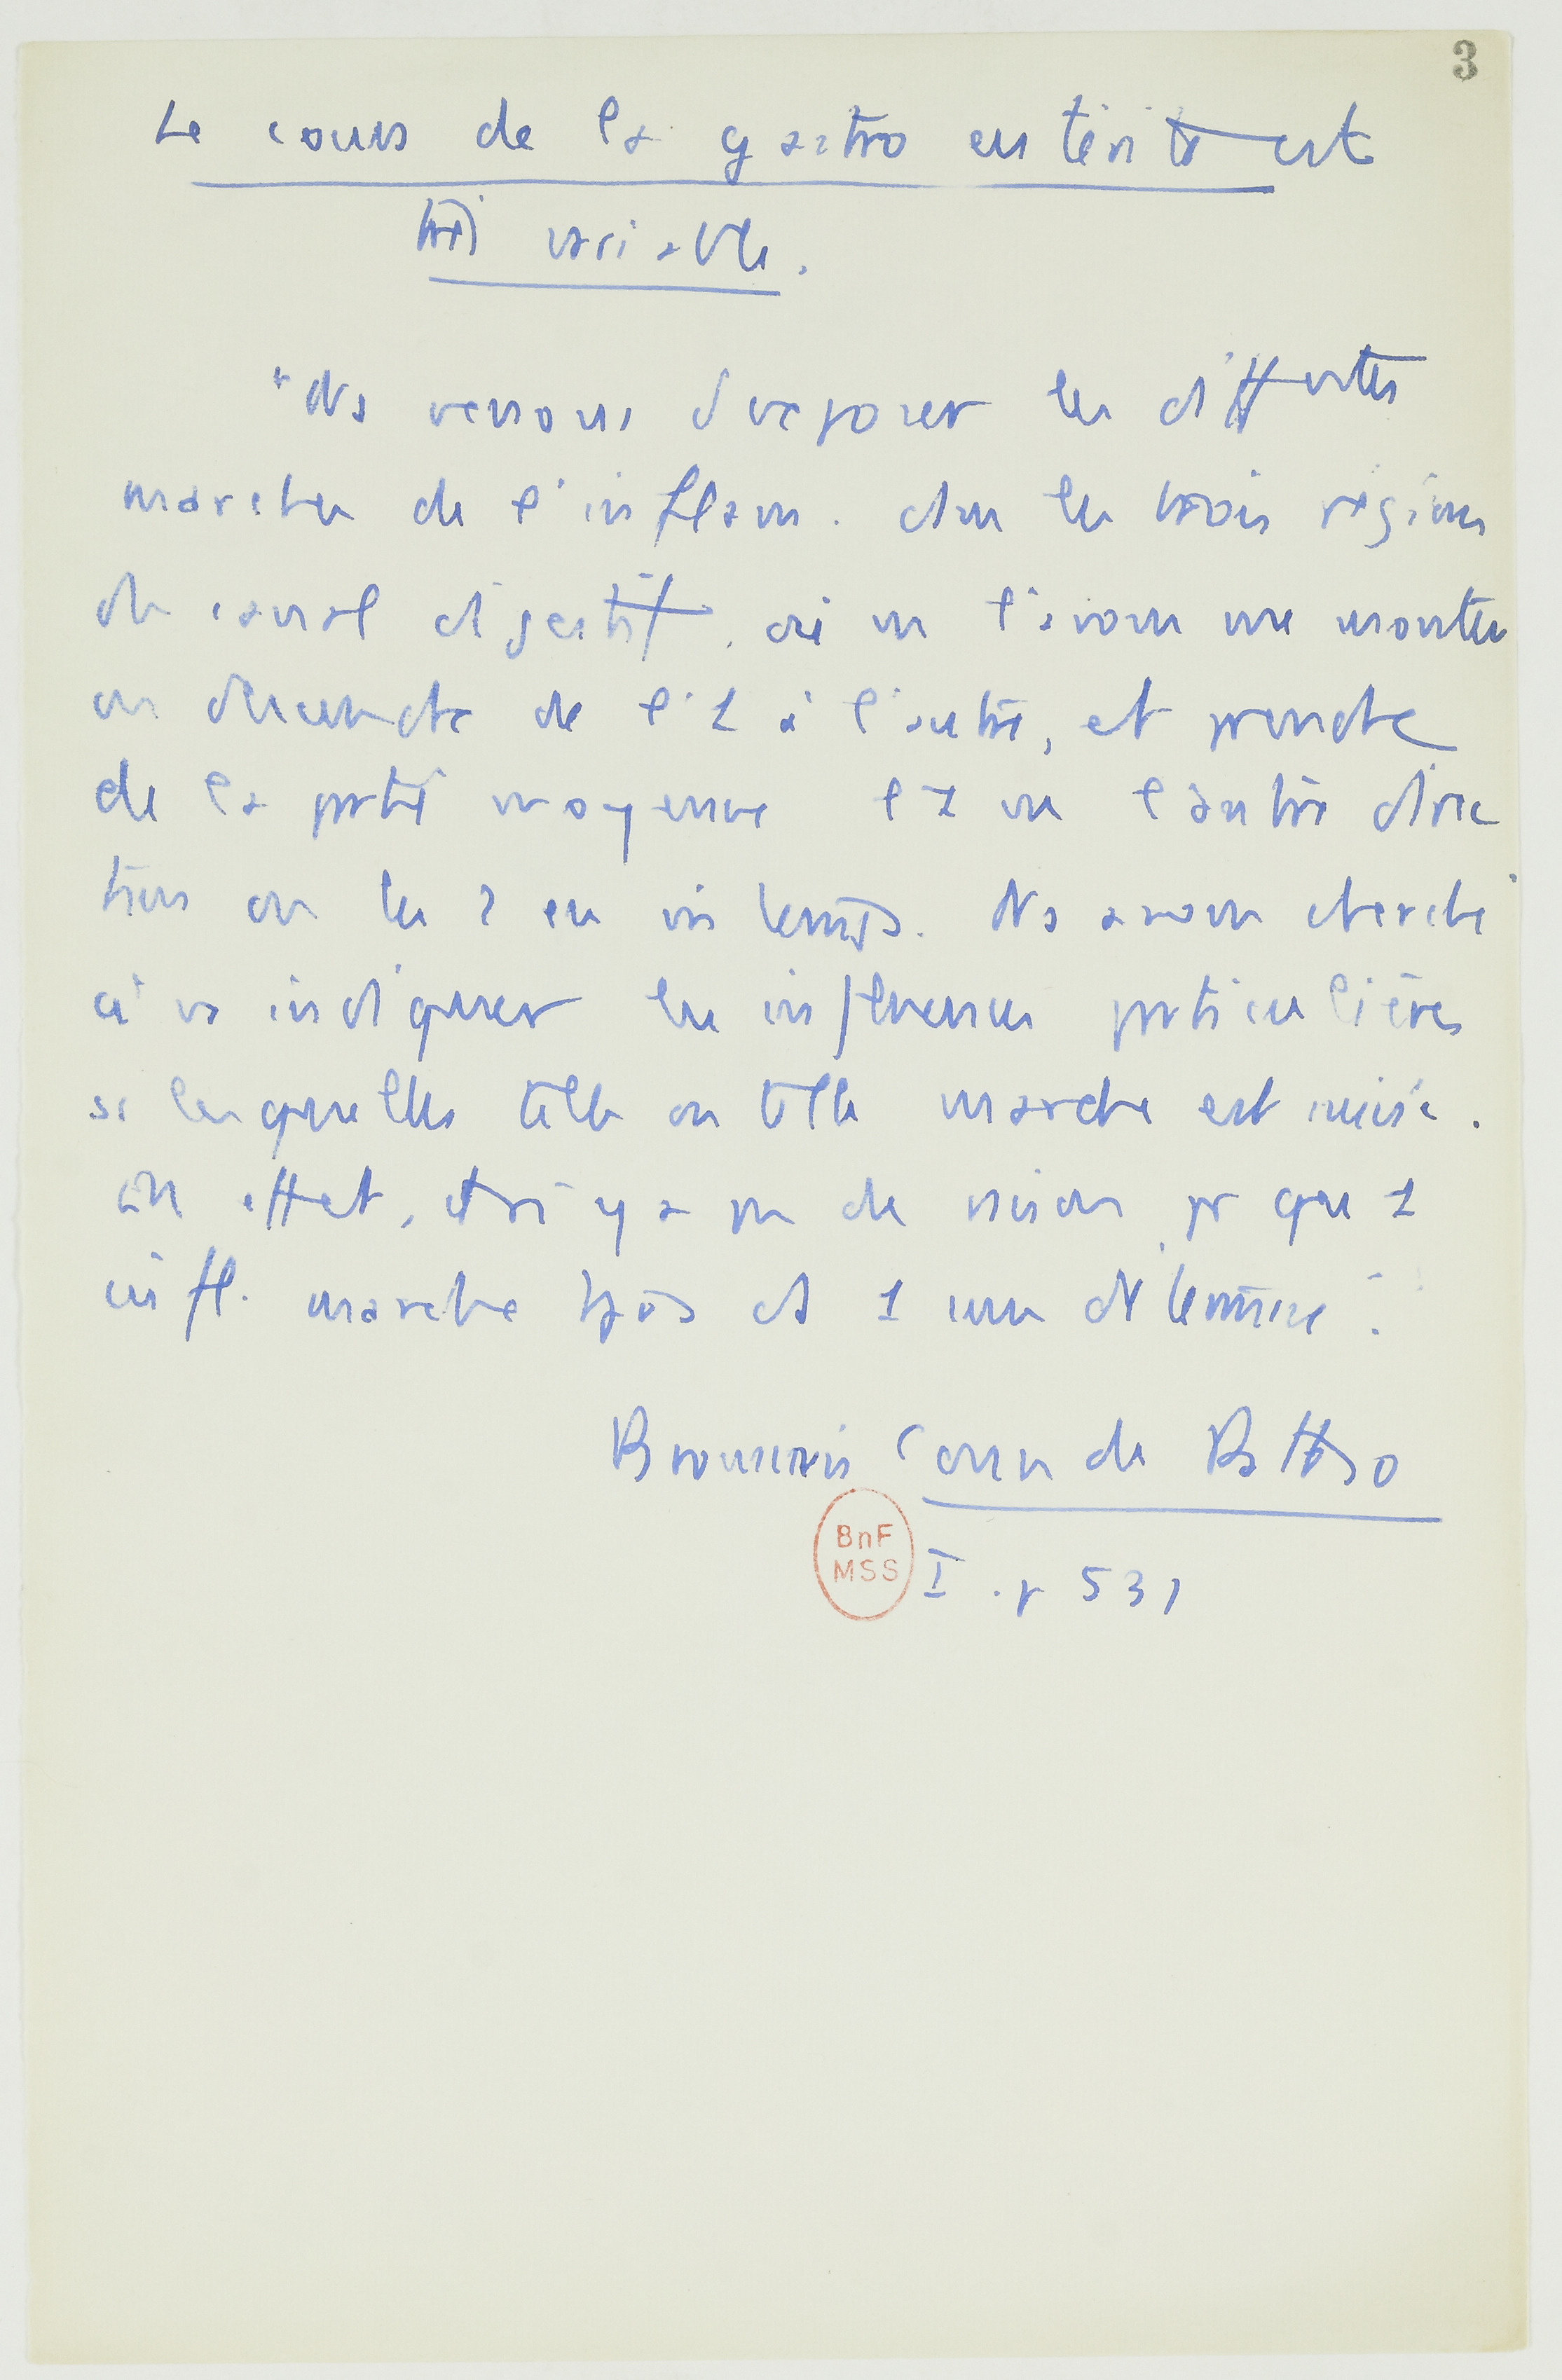 3
Le cours de la gastro entérite est
très variable.
"Ns venons d'exposer les differentes
marches de l'inflam. ds les trois régions
du canal digestif, où ns l'avons vue monter
ou descendre de l'1 à l'autre, et prendre
de la partie moyenne l'1 ou l'autre direc
tion ou les 2 en ms temps. Ns avons cherché
à vs indiquer les influences particulières
si lesquelles telle ou telle marche est
En effet, il n'y a pas de raison pr que 1
infl. marche tjrs ds 1 sens déterminé".
Broussais Cours de Patho
I. p 531
BnF
MSS